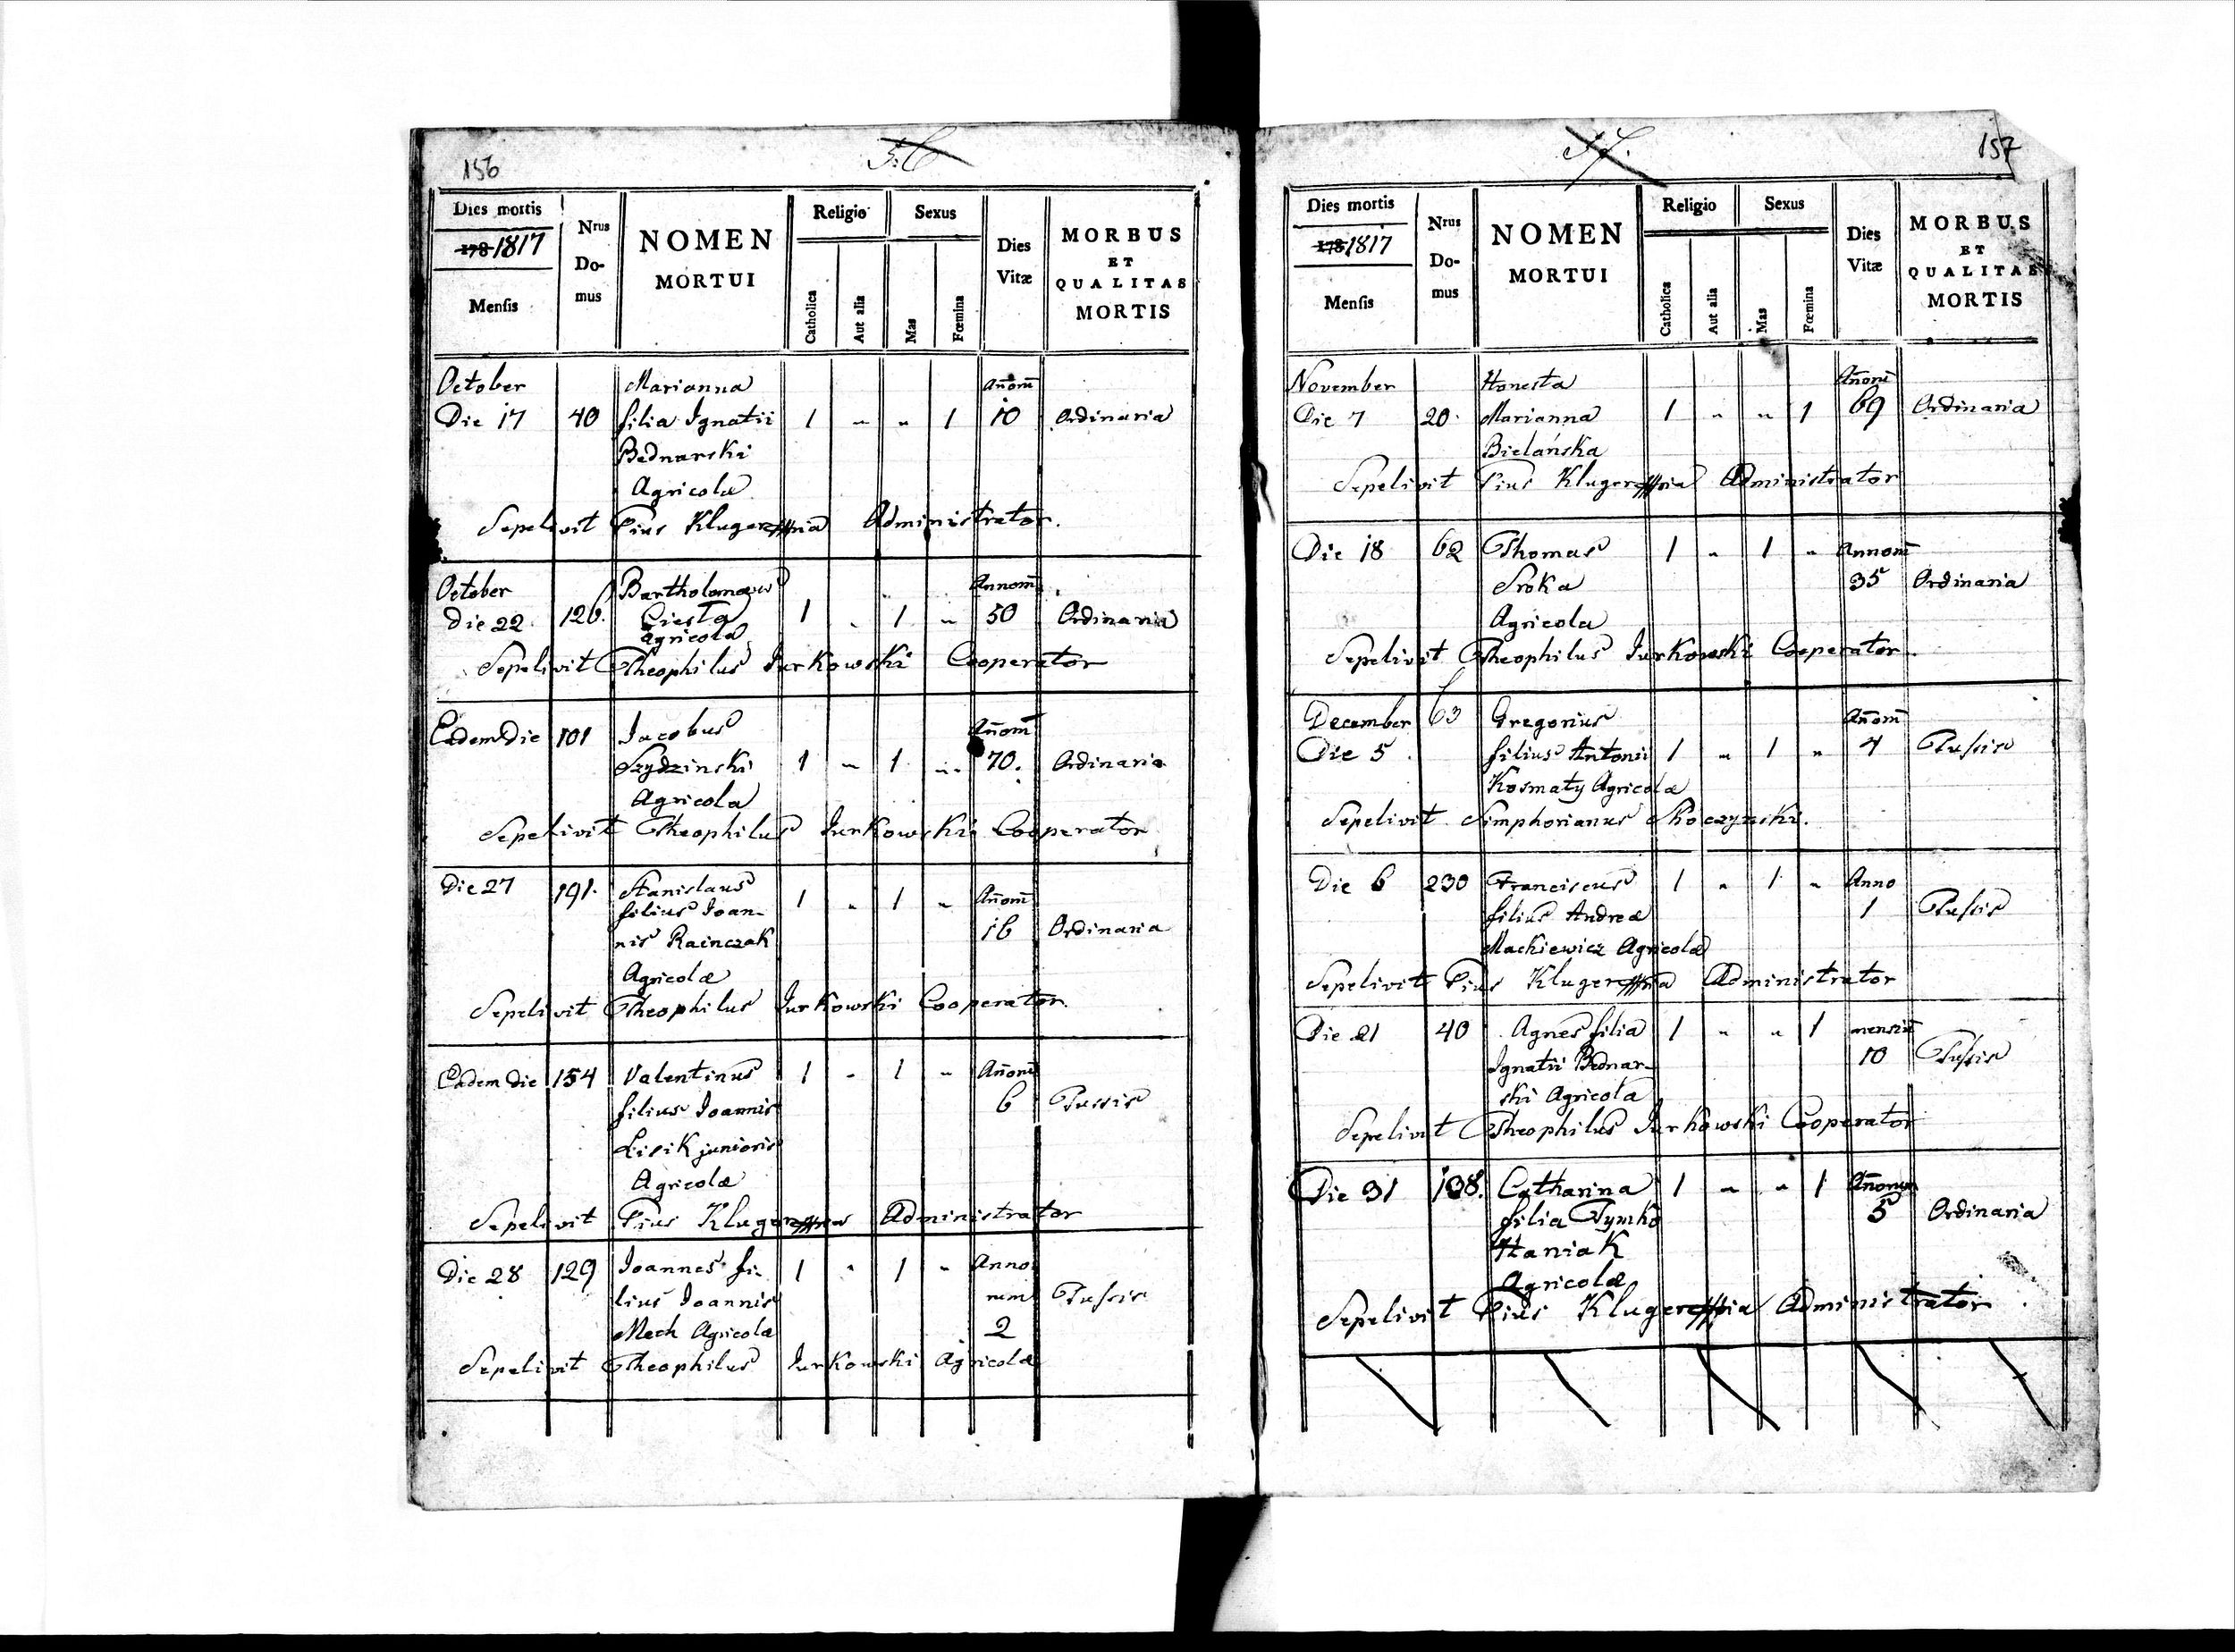 156
56
Dies mortis
178 1817
Mensis
Nrus
Do-
mus
NOMEN
MORTUI
Religio
Catholica
Aut alia
Sexus
Mas
Fœmina
Dies
Vitæ
MORBUS
ET
QUALITAS
MORTIS
October Marianna Añom̄
Die 17 40 filia Ignatii 1 " " 1 10 Ordinaria
Bednarski
Agricolæ
Sepelivit Pius Kluger mpria Administrator.
October Bartholomæus Annom̄
Die 22. 126. Ciesla 1 " 1 " 50 Ordinaria
Agricola
Sepelivit Theophilus Jurkowski Cooperator
Eadem Die 101 Jacobus Añom̄
Szydzinski 1 " 1 " 70. Ordinaria
Agricola
Sepelivit Theophilus Jurkowski Cooperator
Die 27 191. Stanislaus 1 " 1 " Añom̄
filius Joan-
nis Rainczak 16 Ordinaria
Agricolæ
Sepelivit Theophilus Jurkowski Cooperator.
Eadem Die 154 Valentinus 1 " 1 " Añom̄
filius Joannis 6 Tussis
Lisik junioris
Agricolæ
Sepelivit Pius Kluger Administrator
Die 28 129 Joannes fi- 1 " 1 " Anno
lius Joannis rum Tussis
Mech Agricolæ 2
Sepelivit Theophilus Jurkowski Agricolæ
57.
157
Dies mortis
178 1817
Mensis
Nrus
Do-
mus
NOMEN
MORTUI
Religio
Catholica
Aut alia
Sexus
Mas
Fœmina
Dies
Vitæ
MORBUS
ET
QUALITAS
MORTIS
November Honesta Añom̄
Die 7 20. Marianna 1 " " 1 69 Ordinaria
Bielańska
Sepelivit Pius Kluger mpria Administrator
Die 18 62 Thomas 1 " 1 " Annom̄
Sroka 35 Ordinaria
Agricola
Sepelivit Theophilus Jurkowski Cooperator.
December 63 Gregorius Añom̄
Die 5. filius Antonii 1 " 1 " 4 Tussis
Kosmaty Agricolæ
Sepelivit Simphorianus Skoczynski.
Die 6 230 Franciscus 1 " 1 " Anno
filius Andreæ 1 Tussis
Mackiewicz Agricolæ
Sepelivit Pius Kluger mpria Administrator
Die 21 40 Agnes filia 1 " " 1 mensiū
Ignatii Bednar- 10 Tussis
ski Agricola
Sepelivit Theophilus Jurkowski Cooperator
Die 31 138. Catharina 1 " " 1 Añorum
filia Tymko 5 Ordinaria
Haniak
Agricolæ
Sepelivit Pius Kluger mpria Administrator